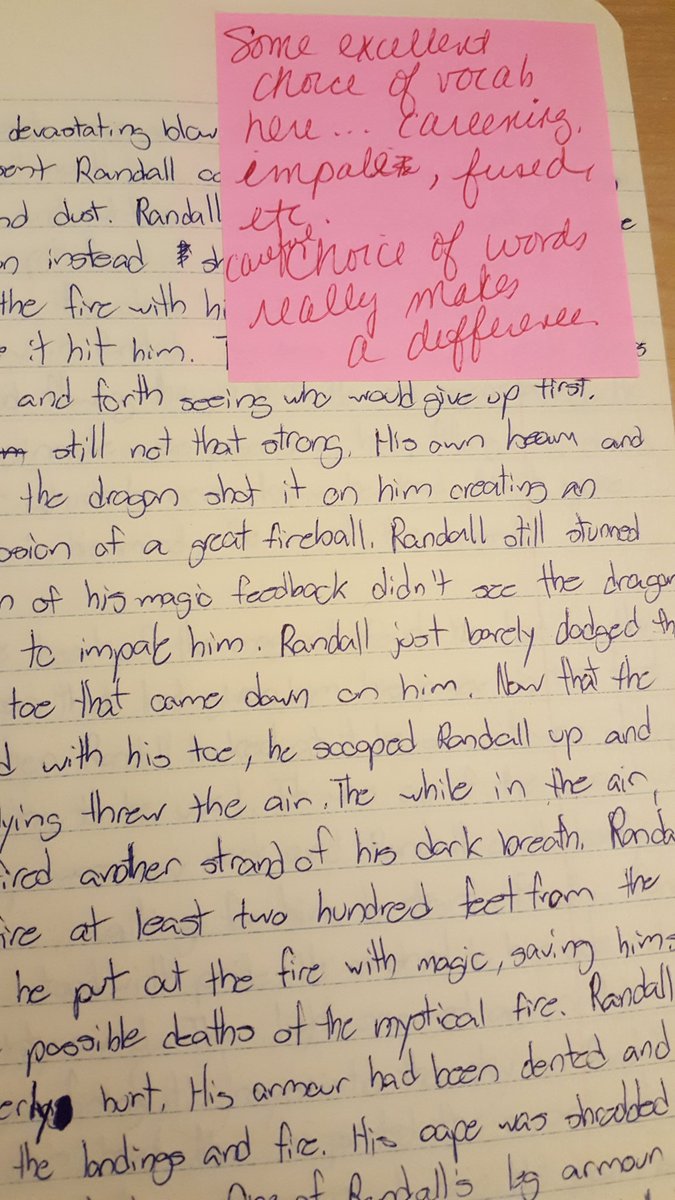 Some excellent
choice of vocab
here... careening,
impale, fused,
etc.
careful choice of words
really makes
a difference.
devastating blow
sent Randall
nd dust. Randall
n instead
the fire with hi
it hit him. T
and forth seeing who would give up first.
still not that strong. His own beam and
the dragon shot it on him creating an
osion of a great fireball. Randall still stunned
n of his magic feedback didn't see the dragon
to impale him. Randall just barely dodged th
toe that came down on him. Now that the
d with his toe, he scooped Randall up and
lying threw the air. The while in the air,
ired another strand of his dark breath. Randa
ire at least two hundred feet from the
he put out the fire with magic, saving hims
possible deaths of the mystical fire. Randall
erly hurt. His armour had been dented and
the landings and fire. His cape was shredded
One of Randall's leg armour